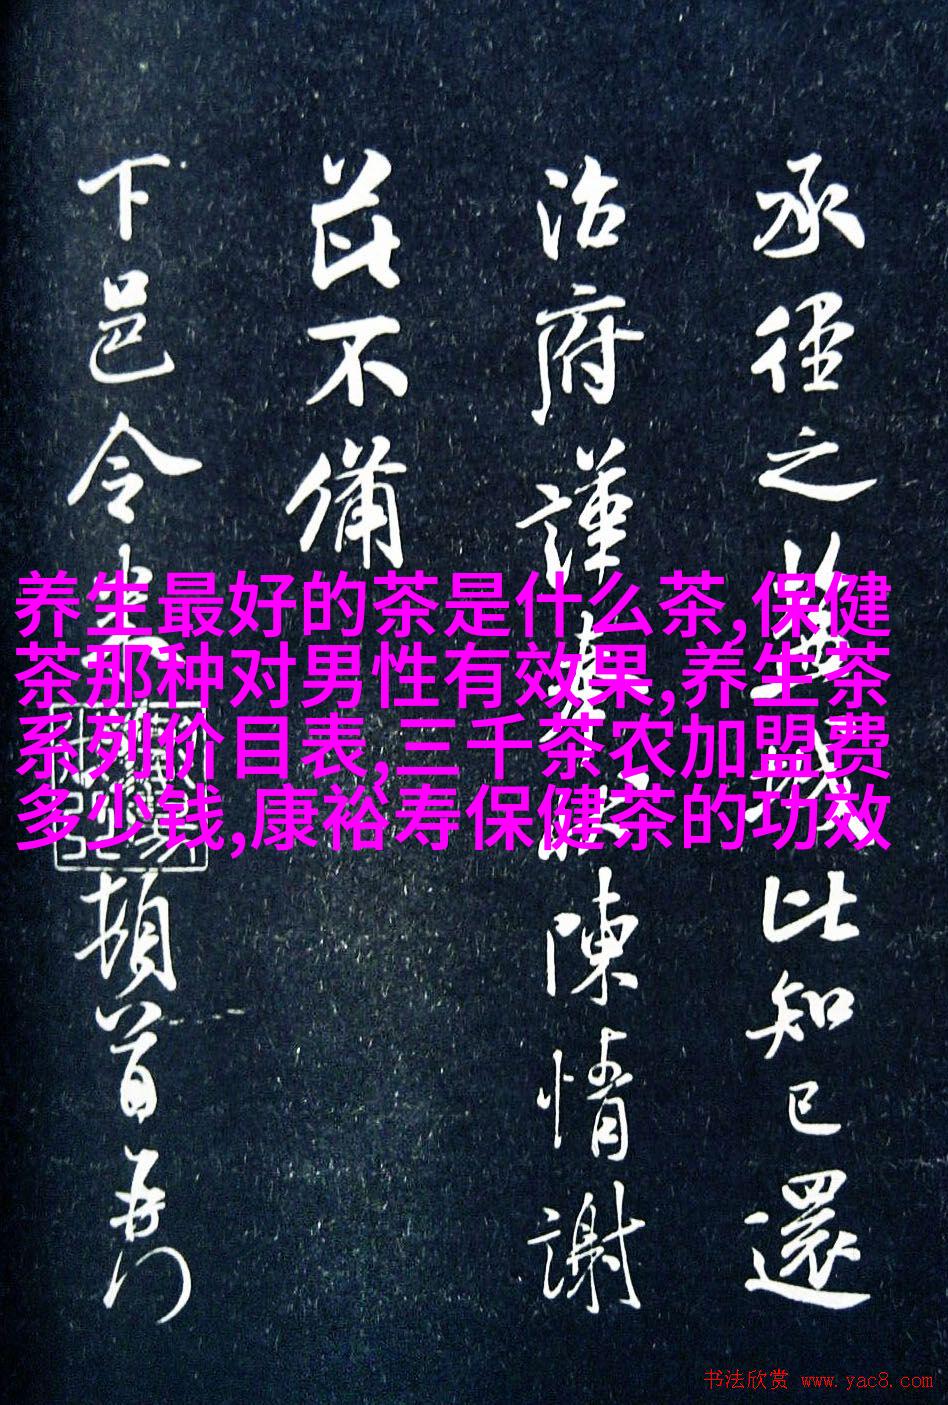 承径之
比知已還
治府謹
陳情謝
茲不備
下邑令
頓首再
养生最好的茶是什么茶,保健
茶那种对男性有效果,养生茶
系列价目表,三千茶农加盟费
多少钱,康裕寿保健茶的功效
书法欣赏 www.yac8.com